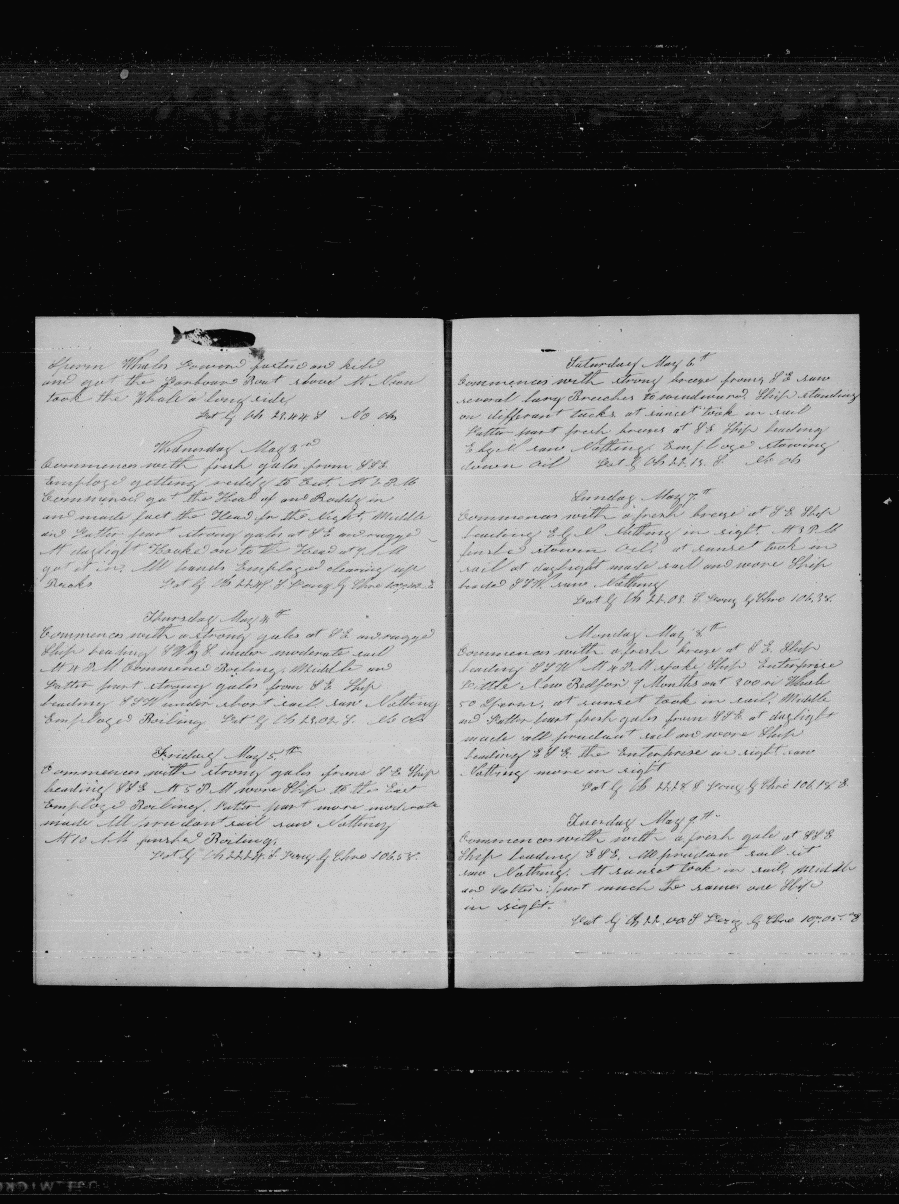 Sperm Whales Lowerd fasten on kild
and got the Larboard Boat stove At Noon
took the Whale a long side
Lat by Ob 23.44 S No Ob
Wednesday May 3rd
Commences with fresh gales from SSE
Employed getting reddy to Cut At 2 P.M
Commenced got the Head of and Boddy in
and made fast the Head for the Night Middle
and Latter part strong gales at SE and rugged
At daylight Hooked on to the Head at 7 A M
got it in, All hands Employed clearing up
Decks Lat by Ob 22.44 S Long by Chro
Thursday May 4th
Commences with a strong gales at SE and rugged
Ship heading SW by S. under moderate sail
At 4 P.M Commence Boiling. Middle and
Latter part strong gales from SE Ship
heading SSW under short sail saw Nothing
Employed Boiling Lat by Ob 23.02 S. No Ob
Friday May 5th
Commences with strong gales from SE Ship
heading SSE At 5 P.M wore Ship to the East
Employed Boiling. Latter part more moderate
made All prudant sail saw Nothing
At 10 A M finshed Boiling.
Lat by Ob 22.24. S Long by Chro 106.58.
Saturday May 6th
Commences with strong breeze from S E saw
several lary Breeches to windward Ship standing
on differant tacks at sunset took in sail
Latter part fresh breeze at SE Ship heading
E by N saw Nothing Employed stowing
down Oil Lat by Ob 22.13. S. No ob
Sunday May 7th
Commences with a fresh breeze at SE Ship
heading E by N Nothing in sight At 3 P M
finshd stowin Oil. at sunset took in
sail at daybright made sail and wore Ship
headed SSW. saw Nothing
Lat by Ob 22.03. S. Long by Chro 106.38.
Monday May 8th
Commences with a fresh breeze at SE. Ship
heading SSW At 4 P.M spoke Ship Enterprise
Little New Bedford 9 Months out 300 Whale
50 Sperm. at sunset took in sail. Middle
and Latter part fresh gales from SSE at daylight
made all prudant sail and wore Ship
heading E S E. the Enterprese in sight saw
Nothing more in sight
Lat by Ob 22.28 S Long by Chro 106.18 E.
Tuesday May 9th
Commences with with a fresh gale at SSE
Ship heading E S E. All prudant sail sit
saw Nothing. At sunset took in sail. Middle
and Latter part much the same. one Ship
in sight.
Lat by Ob 22.00 S Long by Chro 107.05